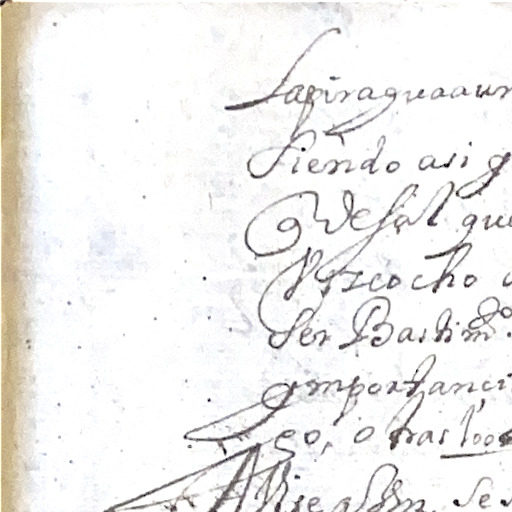 La piragua a un
Siendo asi q
de sal que
Vizcocho
ser Bastim.to
ymportanci
go, otras 100